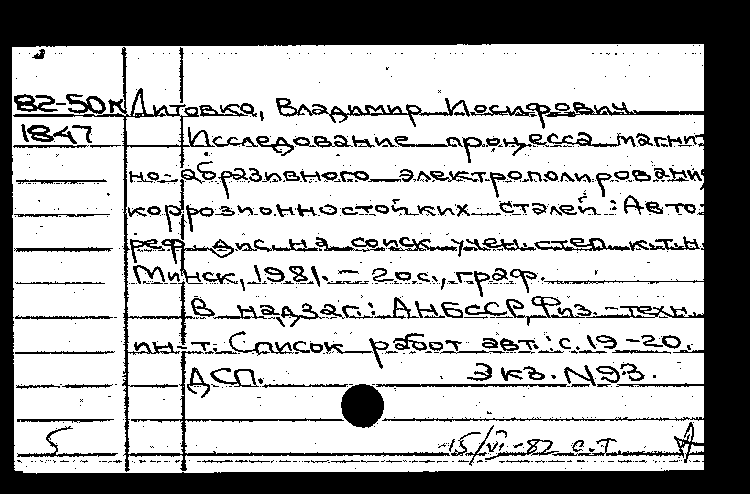 82-50к Литовко, Владимир Иосифович.
1847 Исследование процесса магнит
но-абразивного электрополирования
коррозионностойких сталей : Авто-
реф. дис. на соиск. учен. степ. к.т.н.
Минск, 1981. - 20с., граф.
В надзаг.: АНБССР, Физ.-техн.
ин-т. Список работ авт.: с. 19-20.
ДСП. Экз. N93.
5 15/VI-82 с.т. А